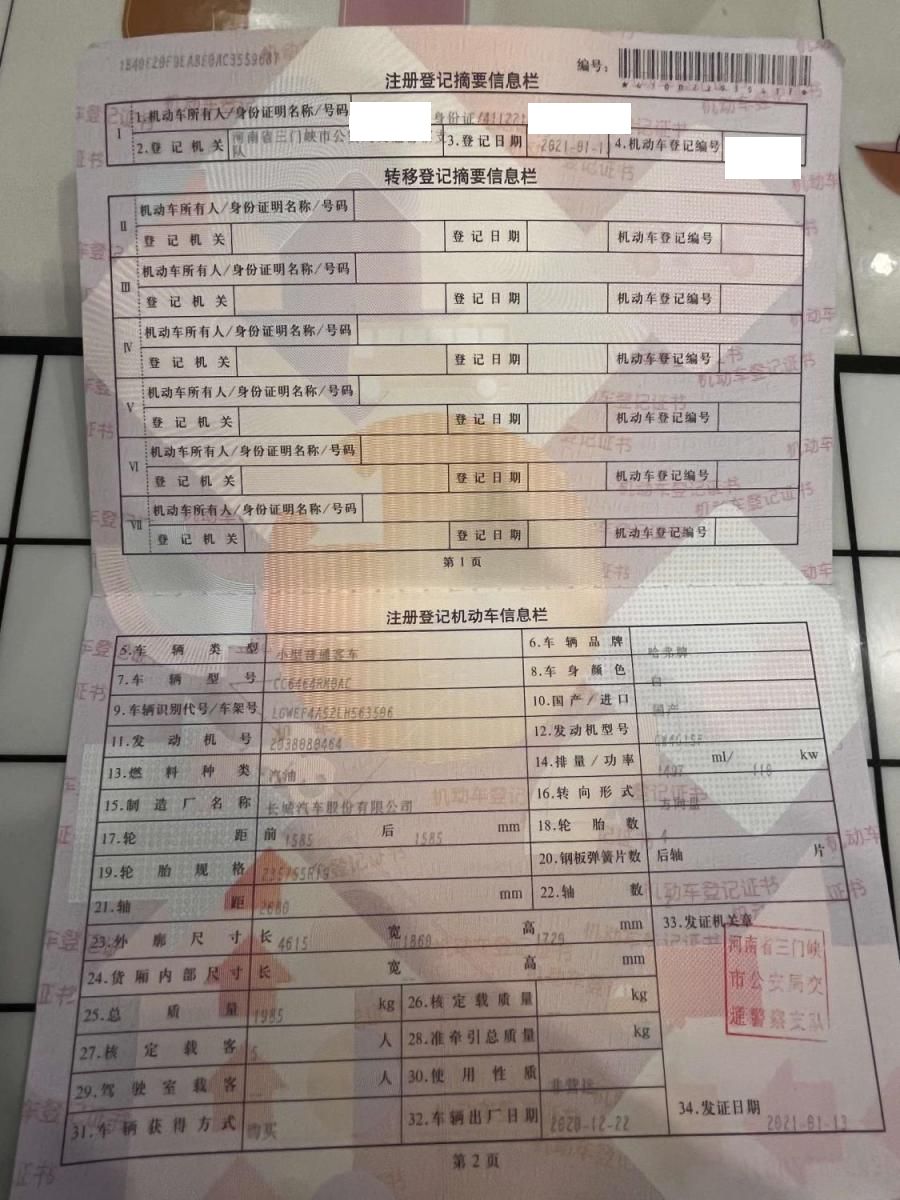 1B40E20F9EABE0AC3559687
编号:
注册登记摘要信息栏
I 1.机动车所有人/身份证明名称/号码 身份证/411221
2.登记机关 河南省三门峡市公 支队 3.登记日期 2021-01-1 4.机动车登记编号
转移登记摘要信息栏
II 机动车所有人/身份证明名称/号码
登记机关 登记日期 机动车登记编号
III 机动车所有人/身份证明名称/号码
登记机关 登记日期 机动车登记编号
IV 机动车所有人/身份证明名称/号码
登记机关 登记日期 机动车登记编号
V 机动车所有人/身份证明名称/号码
登记机关 登记日期 机动车登记编号
VI 机动车所有人/身份证明名称/号码
登记机关 登记日期 机动车登记编号
VII 机动车所有人/身份证明名称/号码
登记机关 登记日期 机动车登记编号
第1页
注册登记机动车信息栏
5.车辆类型 小型普通客车 6.车辆品牌 哈弗牌
7.车辆型号 CC6464RM0AC 8.车身颜色 白
9.车辆识别代号/车架号 LGWEF4A52LH563596 10.国产/进口 国产
11.发动机号 2038088464 12.发动机型号
13.燃料种类 汽油 14.排量/功率 1497 ml/ 110 kw
15.制造厂名称 长城汽车股份有限公司 16.转向形式 方向盘
17.轮距 前 1585 后 1585 mm 18.轮胎数 4
19.轮胎规格 235/55R19 20.钢板弹簧片数 后轴 片
21.轴距 2680 mm 22.轴数
23.外廓尺寸 长 4615 宽 1860 高 1720 mm 33.发证机关章
24.货厢内部尺寸 长 宽 高 mm
河南省三门峡
市公安局交
通警察支队
25.总质量 1985 kg 26.核定载质量 kg
27.核定载客 5 人 28.准牵引总质量 kg
29.驾驶室载客 人 30.使用性质 非营运
31.车辆获得方式 购买 32.车辆出厂日期 2020-12-22 34.发证日期 2021-01-13
第2页